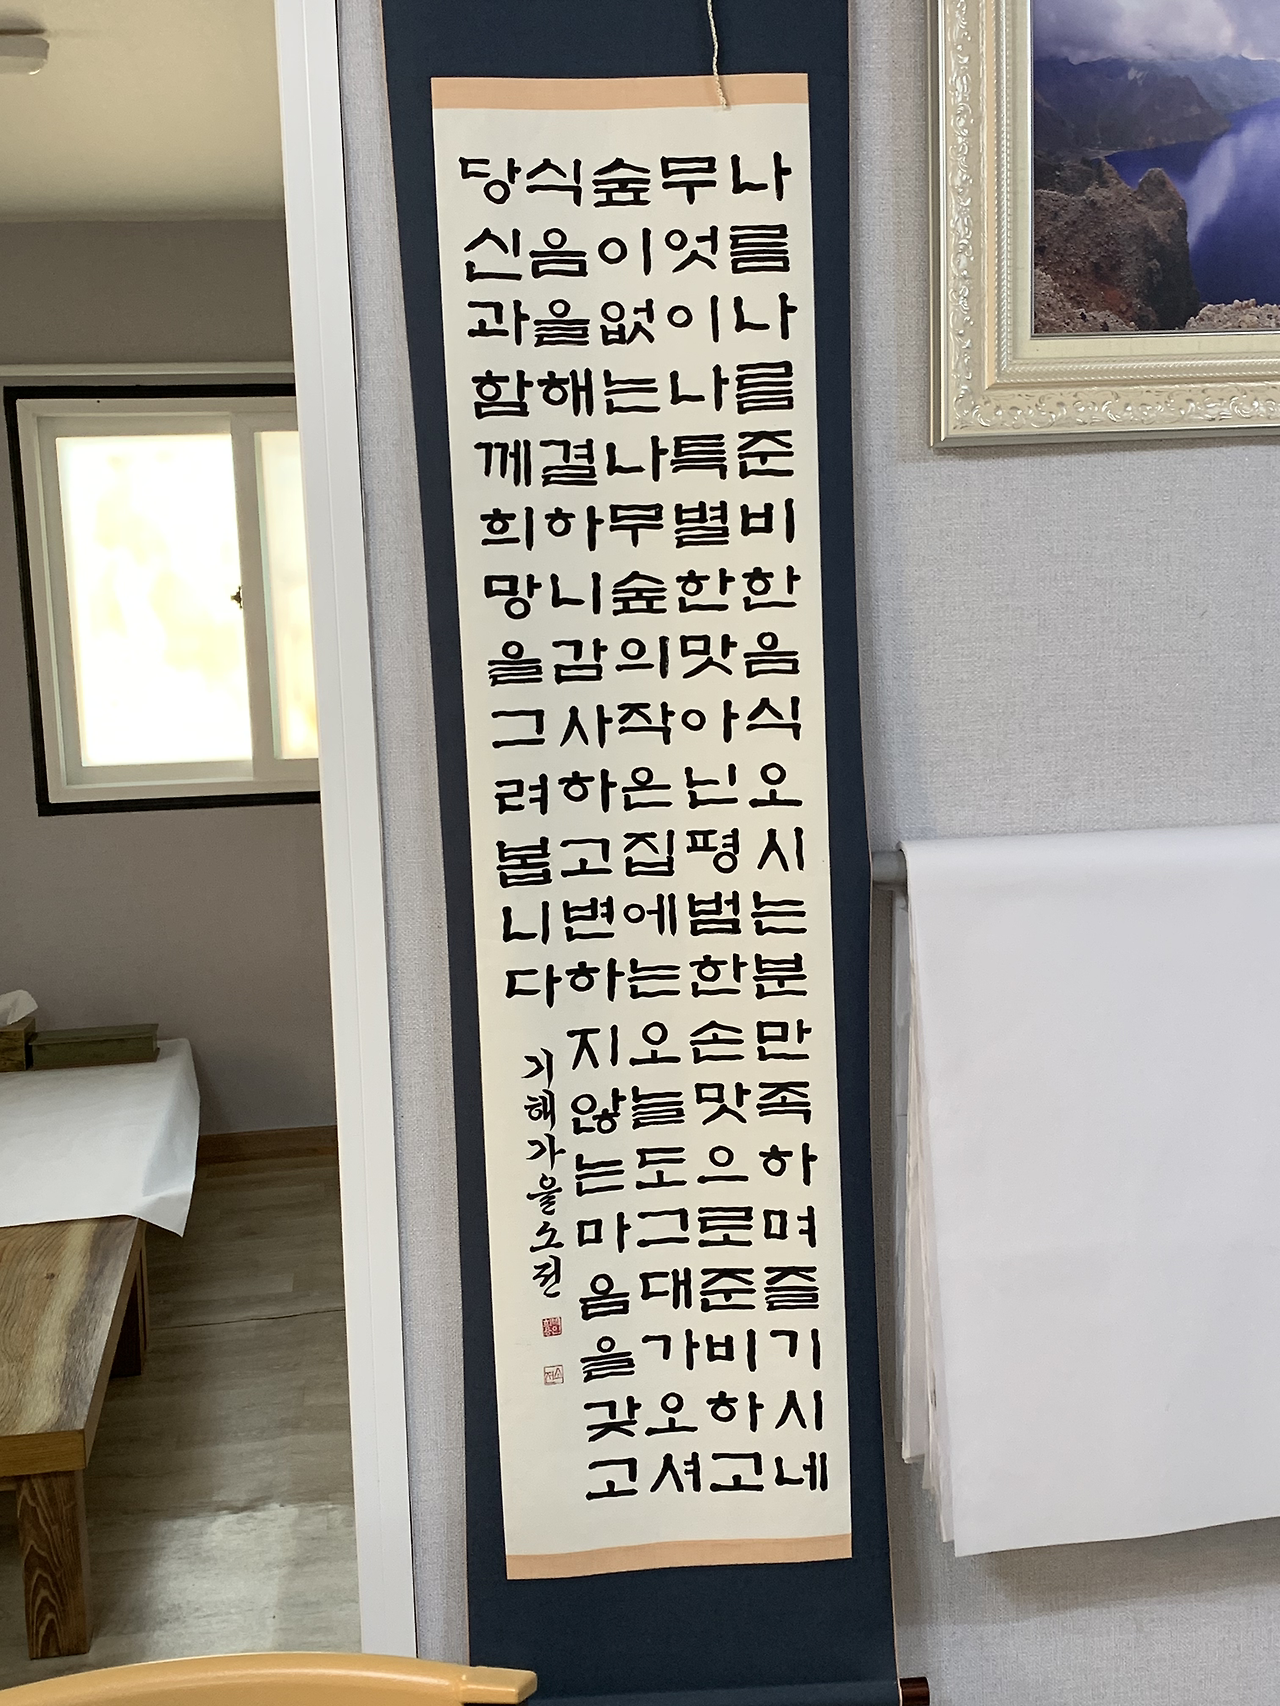 나름나를준비한음식오시는분만족하며즐기시네
무엇이나특별한맛아닌평범한손맛으로준비하고
숲이없는나무숲의작은집에는오늘도그대가오셔
식음을해결하니감사하고변하지않는마음을갖고
당신과함께희망을그려봅니다
기해가을소전